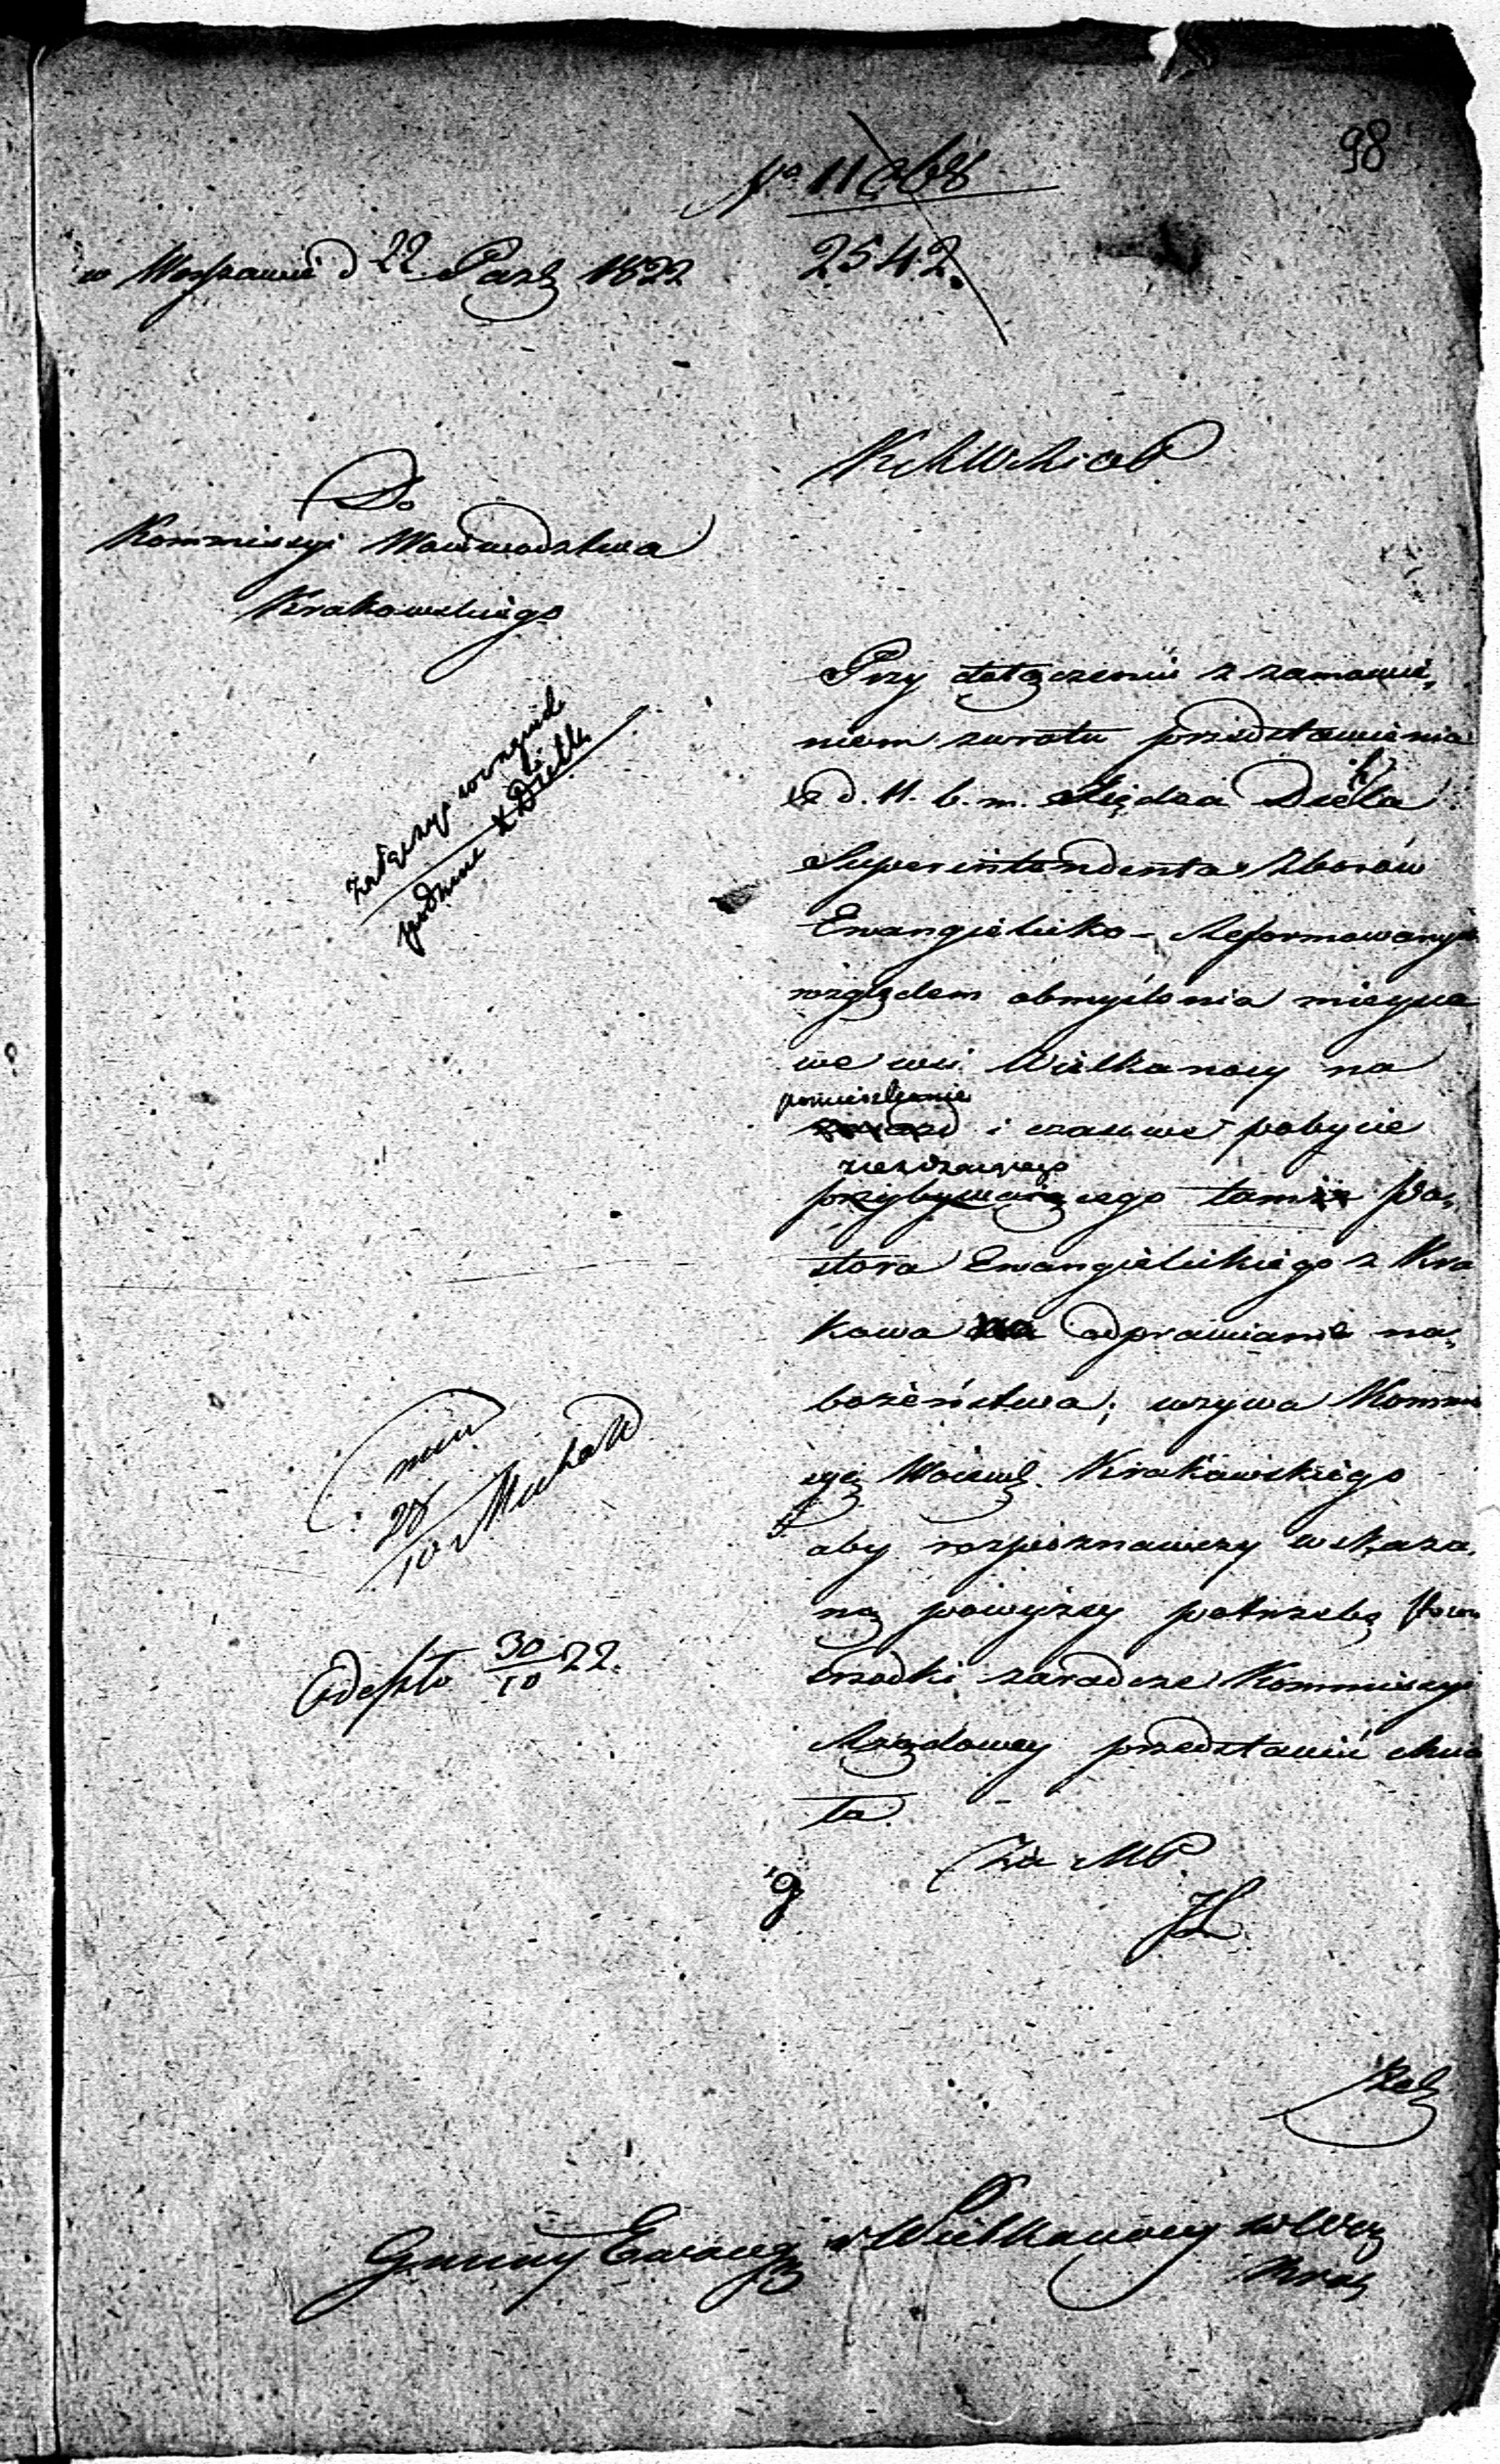 98
No 11068
2542.
w Warszawie d 22 Paźḍ 1822
KRMWRiOP
Do
Kommissyi Woiewodztwa
Krakowskiego
Przy dołączeniu z zamówie-
niem zwrotu przedstawienia
z d. 11. b. m. Xiędza Diehla
Superintendenta Zborów
Ewangielicko-Reformowanych
względem obmyślenia mieysca
we wsi Wielkanocy na
pomieszczenie
i czasowe pobycie
zjezdzaiącego
przybywaiącego tamże Pa-
stora Ewangielickiego z Kra
kowa na odprawianie na-
bożeństwa; wzywa Kommis
syą Woiewd. Krakowskiego
aby rozpoznawszy wskaza-
ną powyżey potrzebę
środki zaradcze Kommissyi
Rządowey przedstawić chcia
ła.
Za MP.
załączyć
podanie X Diehla
28/10
Odeszło 30/10 22.
Gminy Ewang w Wielkanocy w Wdz
Krak